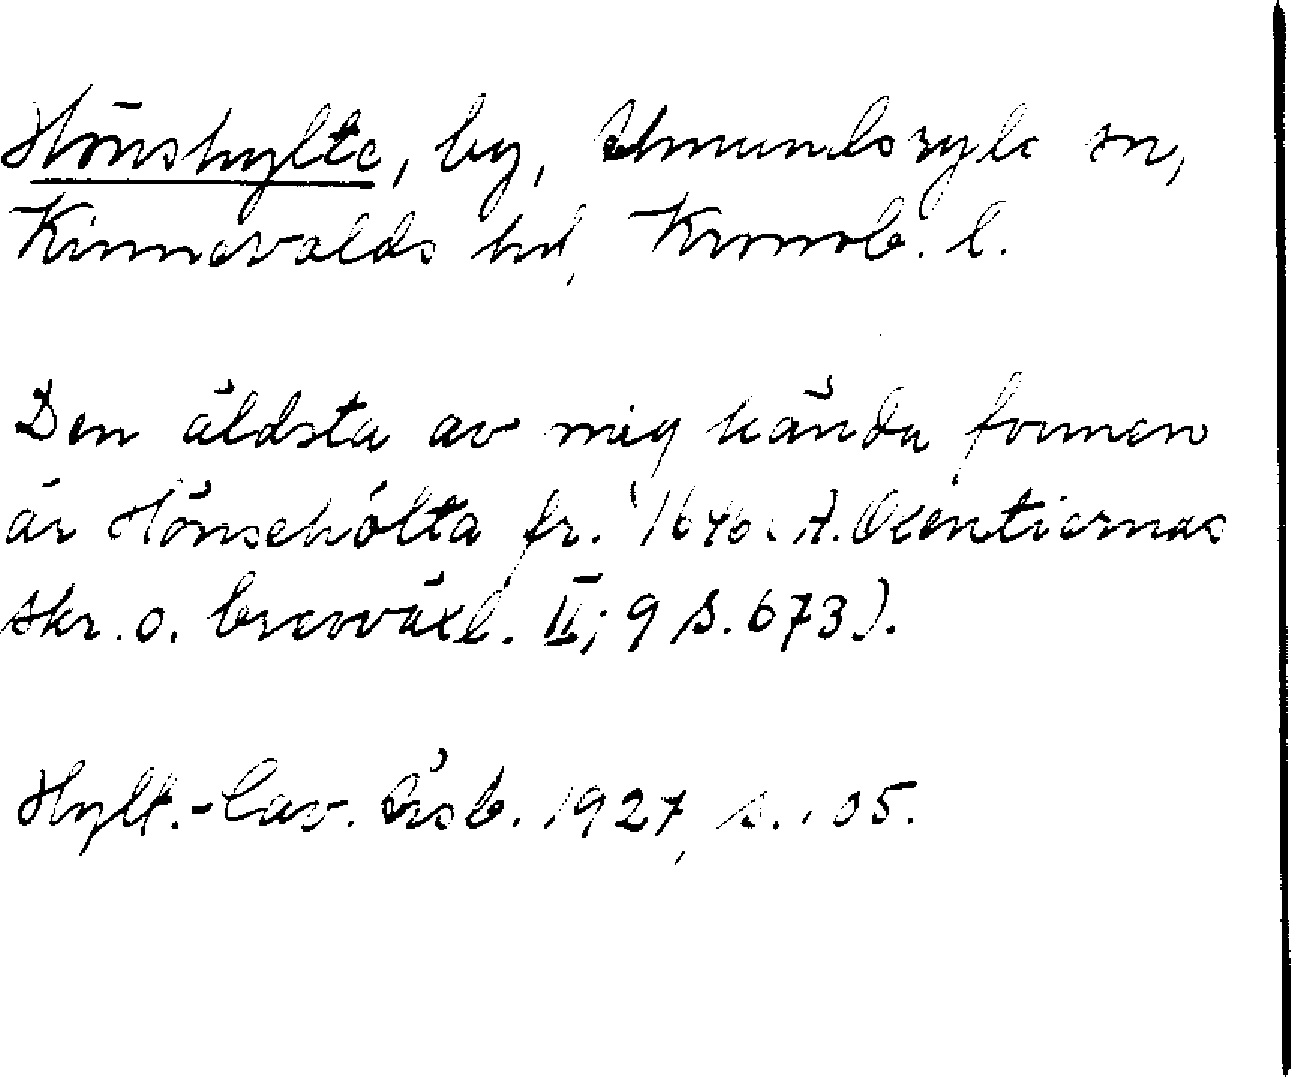 Hönshylte, by, Almundsryds sn,
Kinnevalds hd, Kronob. l.
Den äldsta av mig kända formen
är Hönsehölta fr. 1646. A. Oxentiernas
skr. o. brevväxl. II; 9 s. 673).
Hylt.-Cav. Årsb. 1927, s. 105.